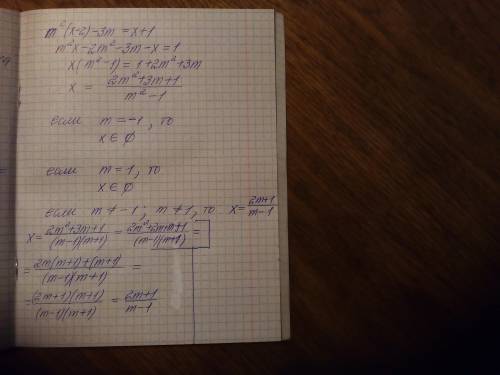 m²(x-2)-3m = x+1
m²x-2m²-3m-x=1
x(m²-1)=1+2m²+3m
x = (2m²+3m+1)/(m²-1)
если m=-1, то
x∈∅
если m=1, то
x∈∅
если m≠-1; m≠1, то x=(2m+1)/(m-1)
x=(2m²+3m+1)/((m-1)(m+1)) = (2m²+2m+m+1)/((m-1)(m+1)) =
=(2m(m+1)+(m+1))/((m-1)(m+1)) =
=((2m+1)(m+1))/((m-1)(m+1)) = (2m+1)/(m-1)